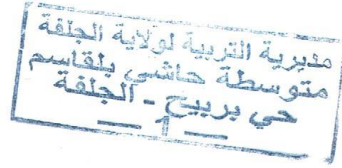 مديرية التربية لولاية الجلفة
متوسطة حاشي بلقاسم
حي بربيح - الجلفة
— 1 —